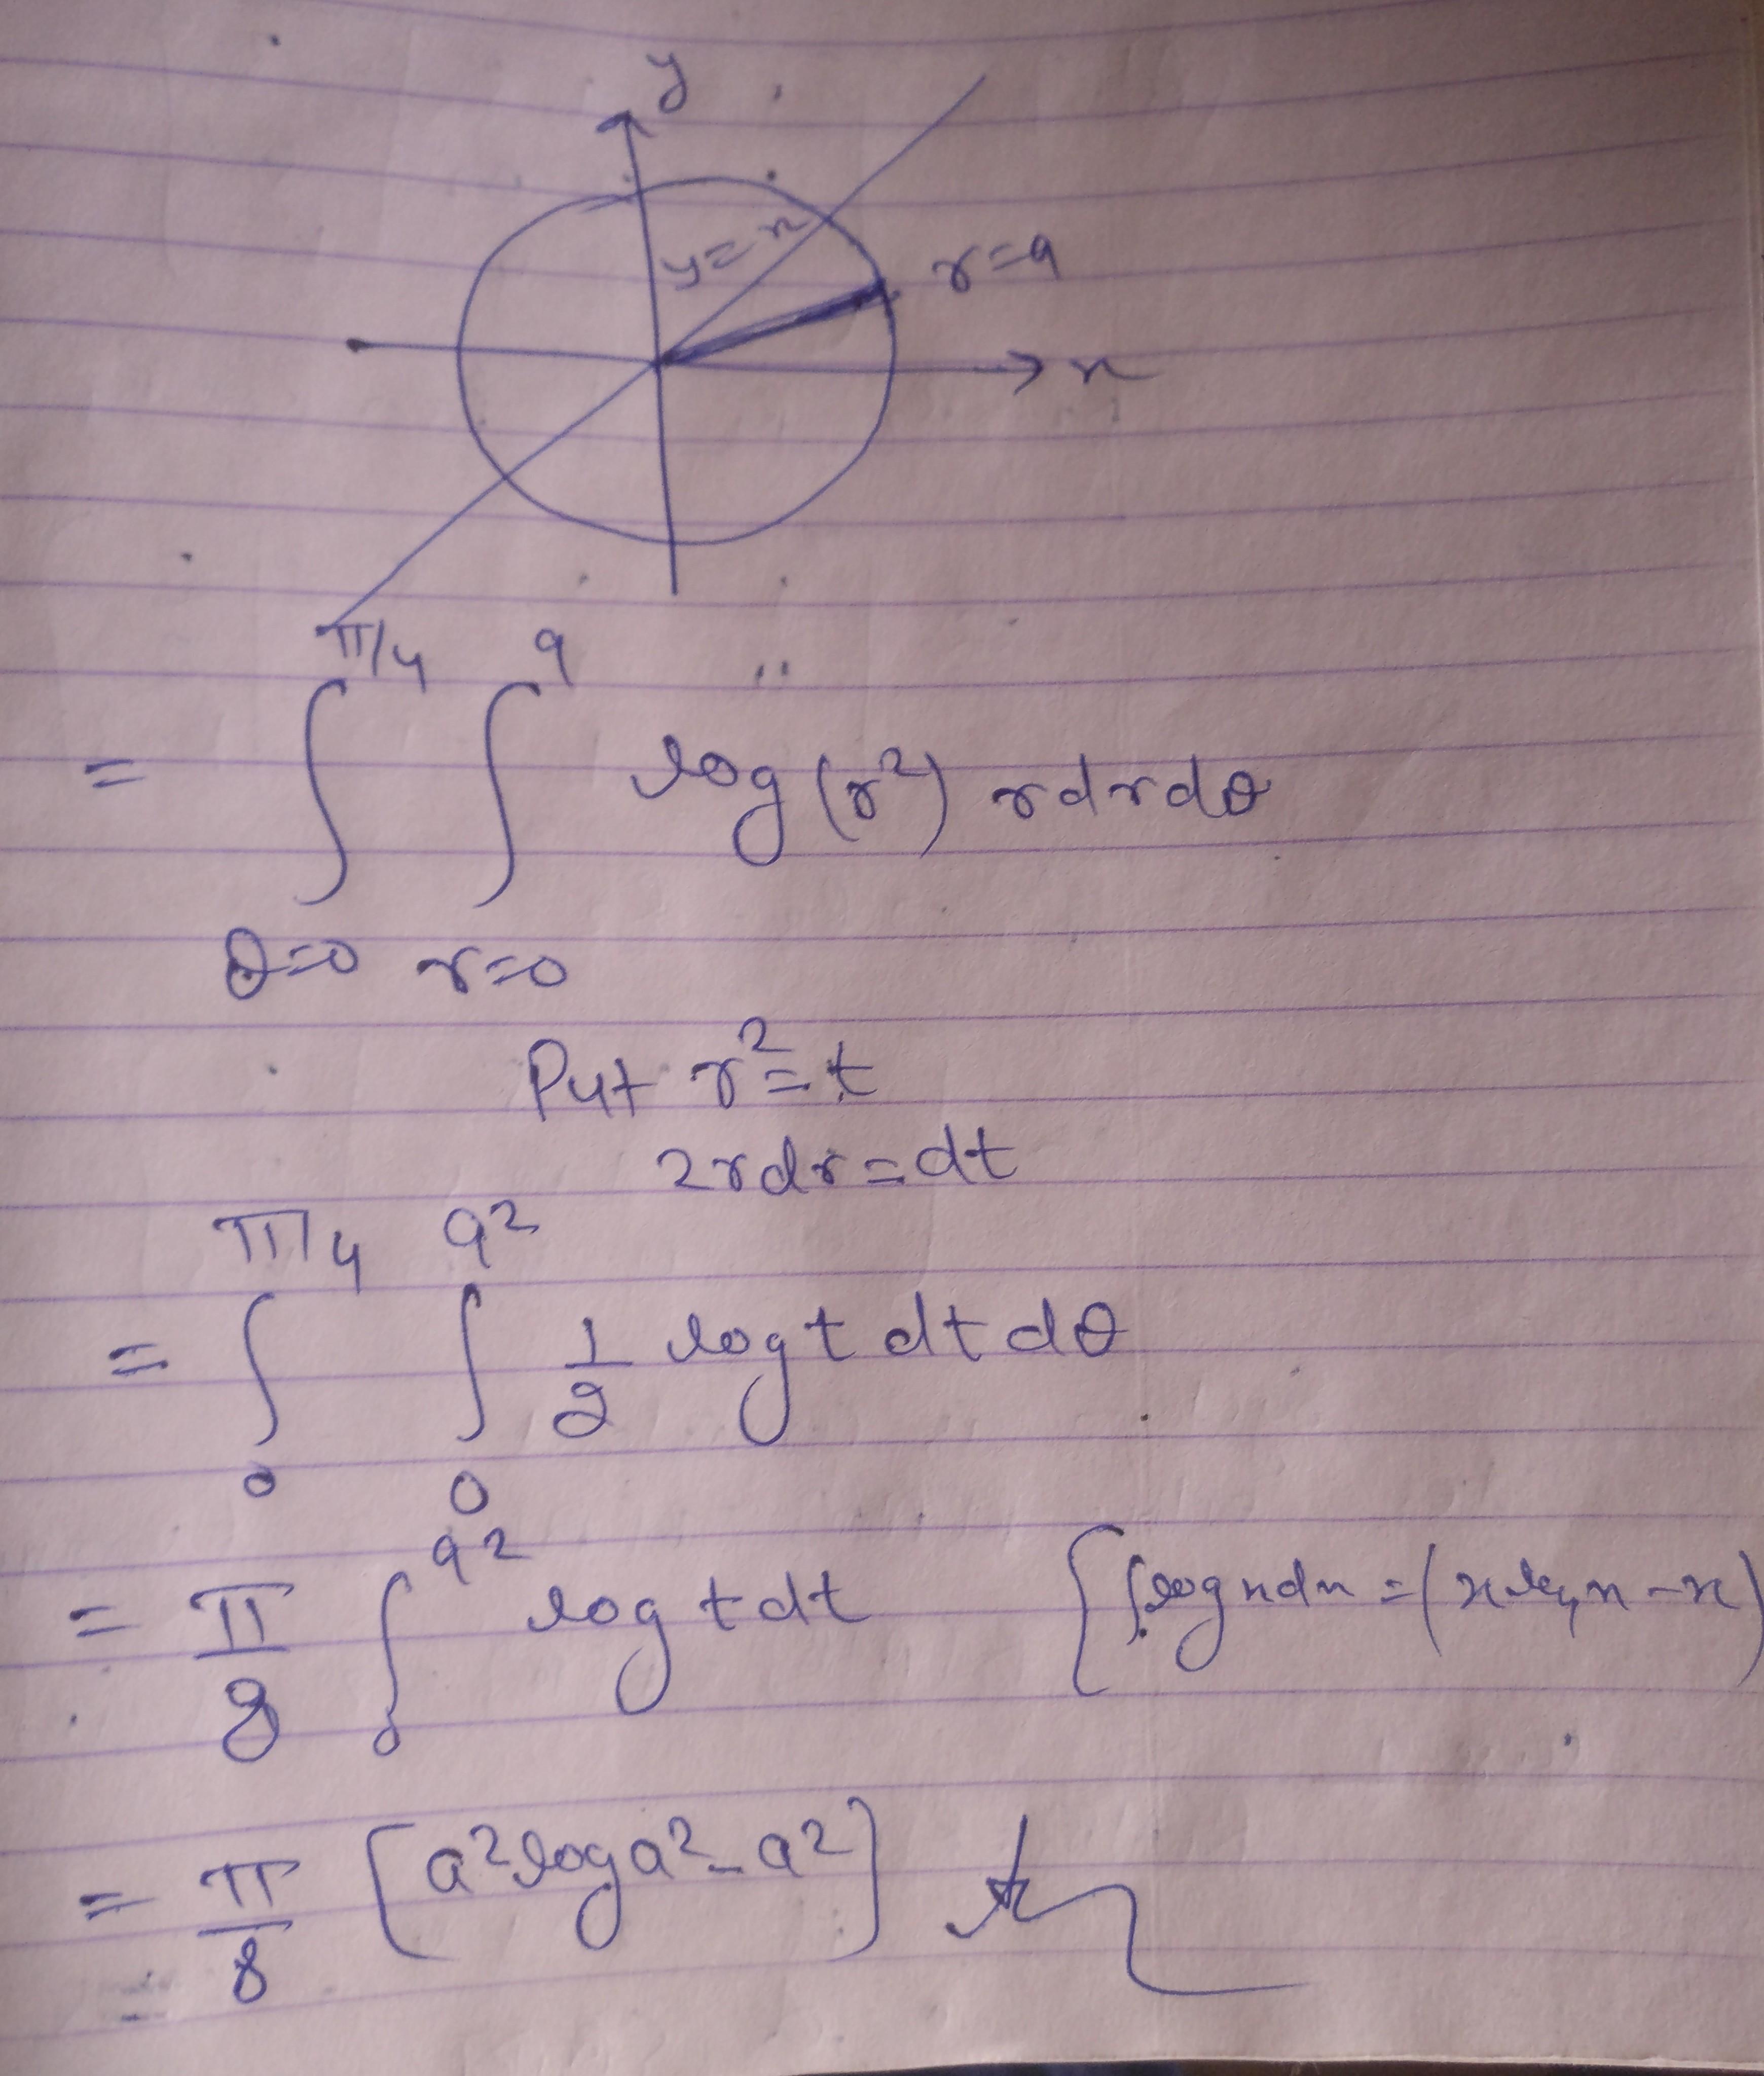 y
y=x
r=a
x
π/4 a
= ∫ ∫ log (r²) r dr dθ
θ=0 r=0
Put r²=t
2rdr=dt
π/4 a²
= ∫ ∫ 1/2 log t dt dθ
0 0
= π/8 ∫₀^a² log t dt { ∫log x dx = (x log x - x)
= π/8 [a² log a² - a²]